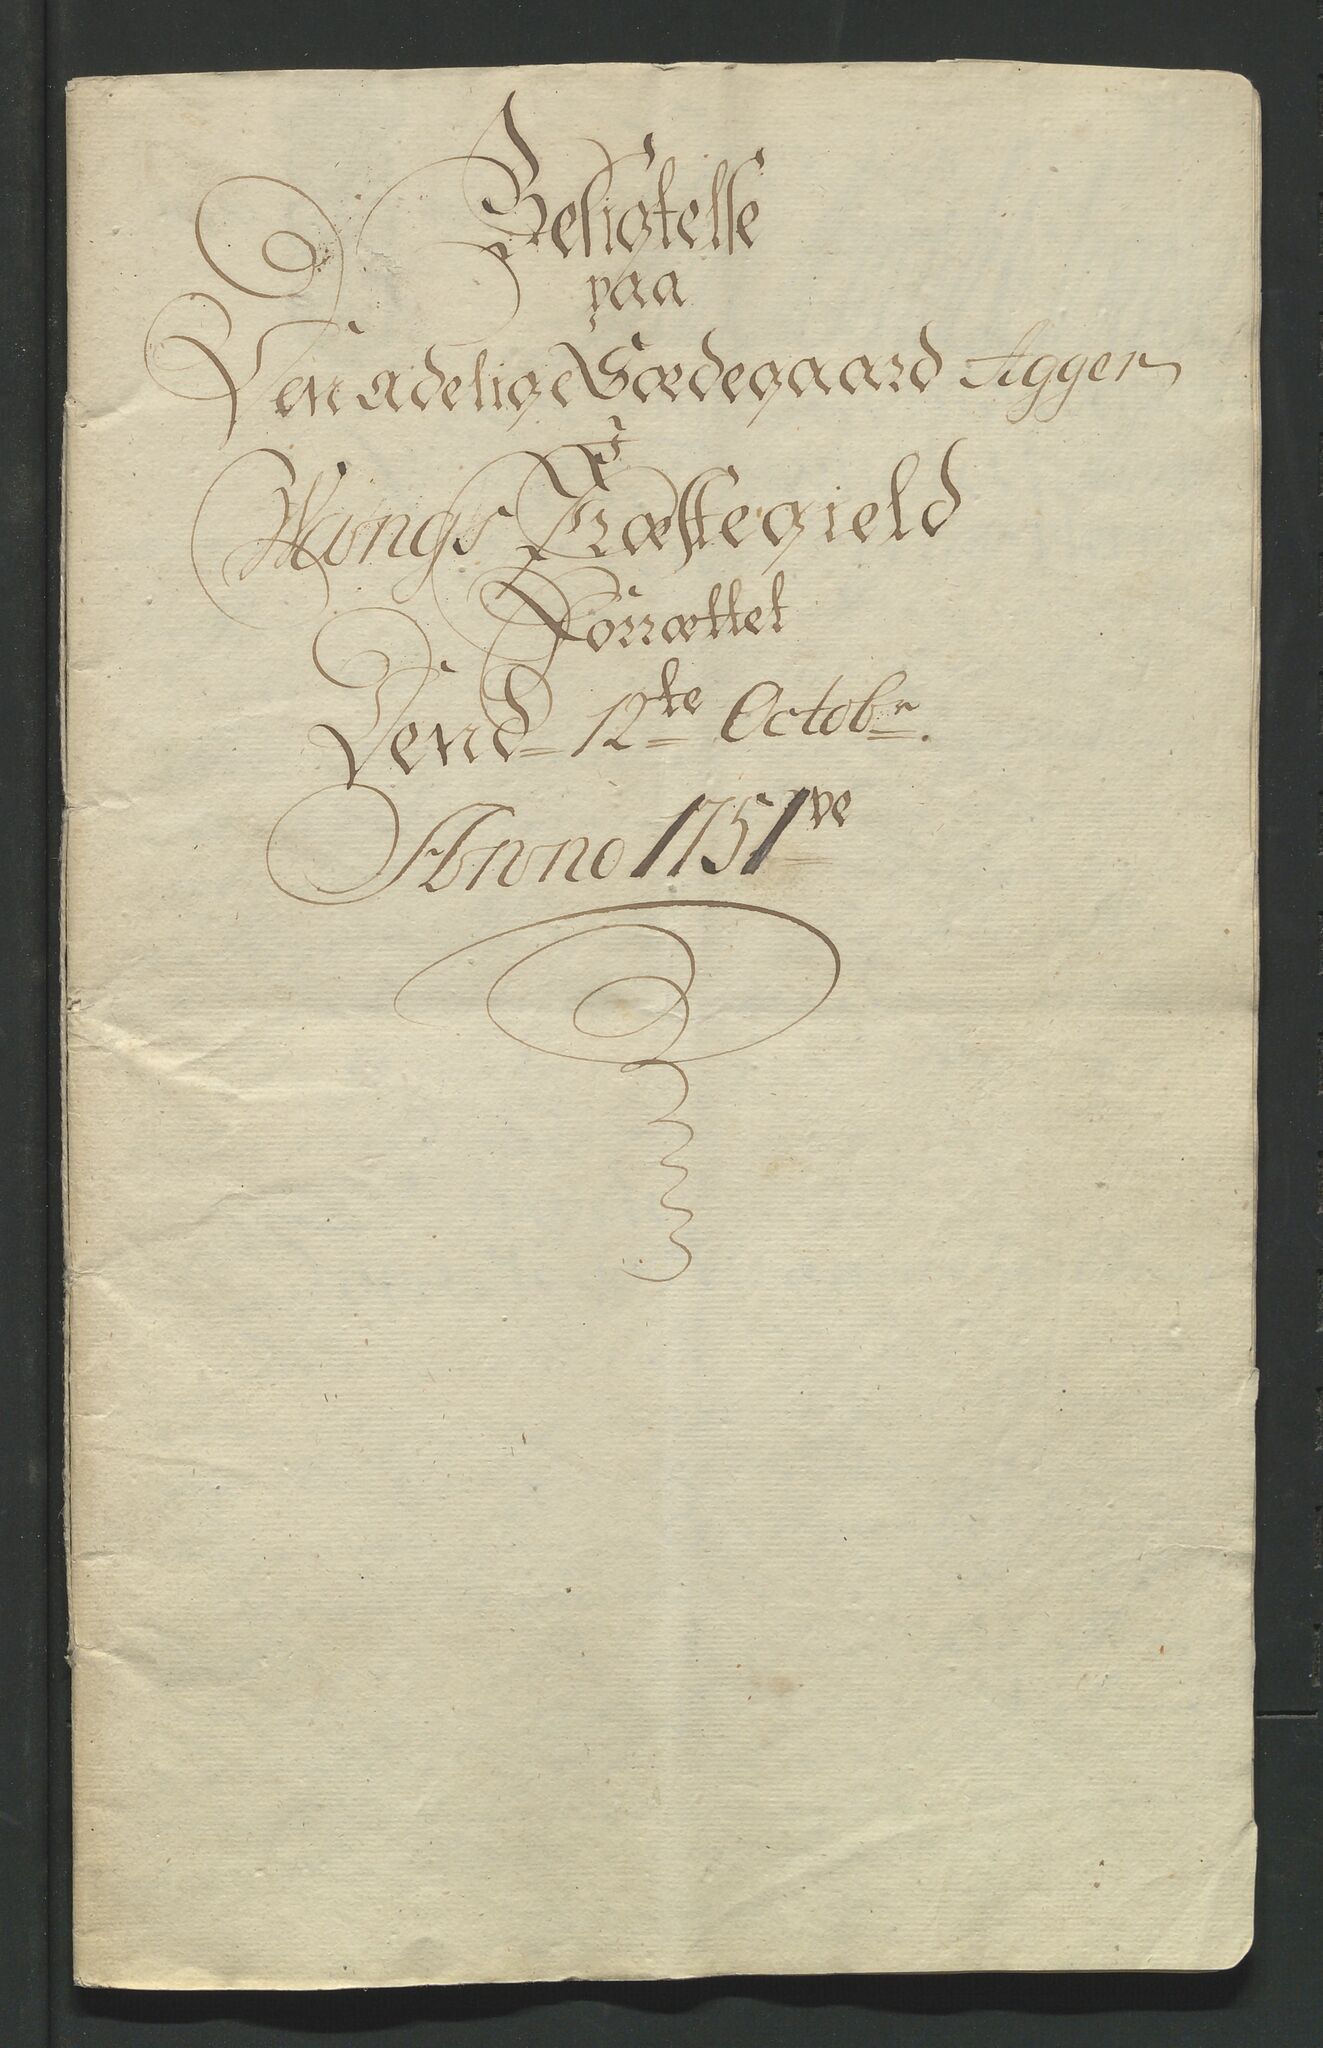 Besigtelse
paa
Den adelige Sædegaard Agger
i
Wangs Præstegield
Forrættet
Dend 12te Octobr.
Anno 1751ve